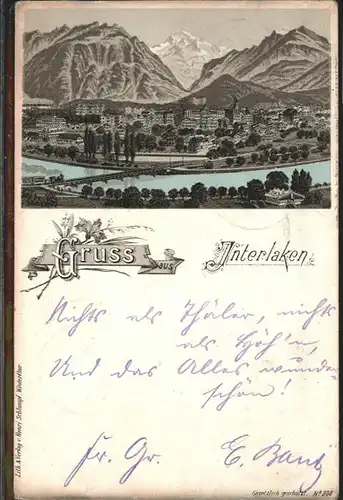 Gruss aus Interlaken.
Nichts als Thäler, nichts
als Höh'n,
Und das Alles wunder-
schön!
Fr. Gr. E.
Lith. & Verlag v. Henri Schlumpf, Winterthur
Gesetzlich geschützt. No 308